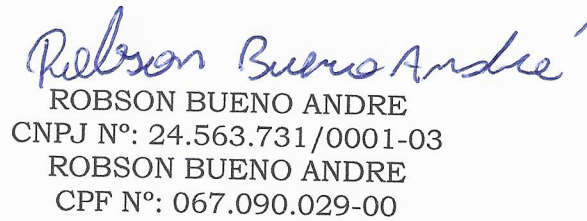 Robson Bueno André
ROBSON BUENO ANDRE
CNPJ Nº: 24.563.731/0001-03
ROBSON BUENO ANDRE
CPF Nº: 067.090.029-00